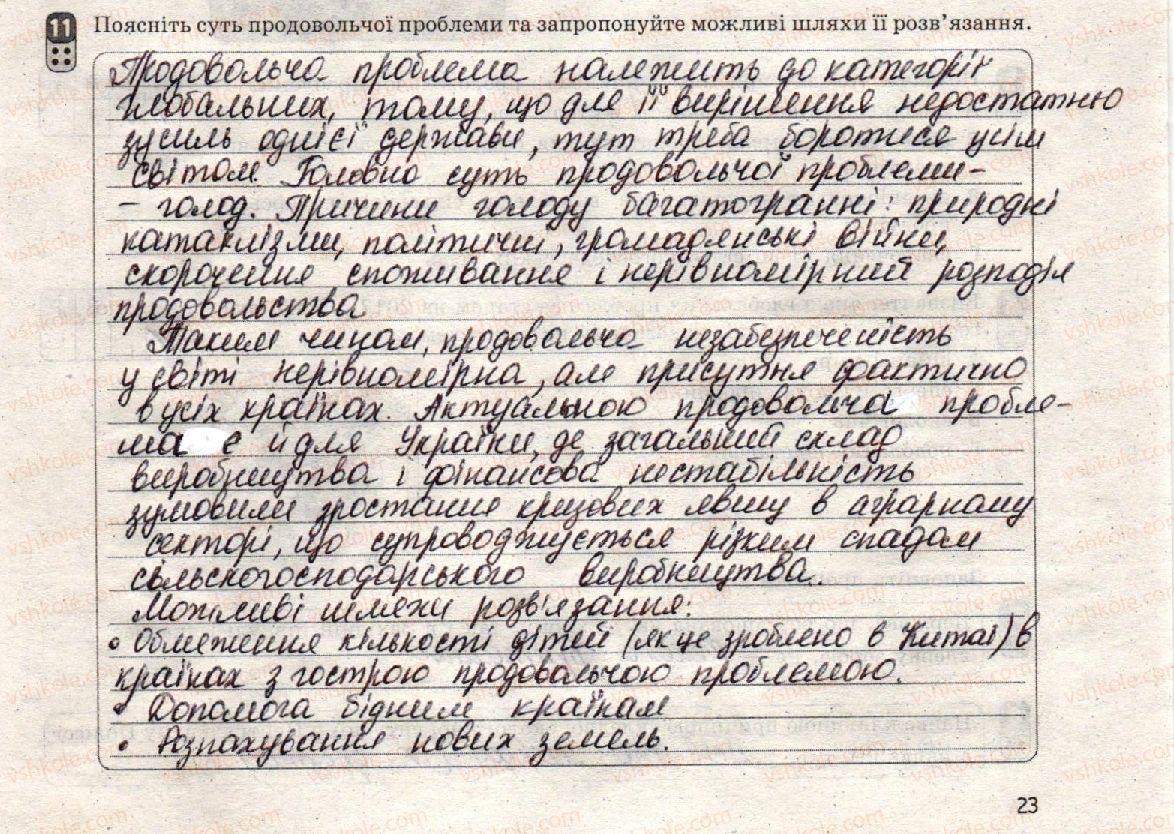 11 Поясніть суть продовольчої проблеми та запропонуйте можливі шляхи її розв'язання.
Продовольча проблема належить до категорії
глобальних, тому, що для її вирішення недостатньо
зусиль однієї держави, тут треба боротися усім
світом. Головна суть продовольчої проблеми -
- голод. Причини голоду багатогранні: природні
катаклізми, політичні, громадянські війни,
скорочення споживання і нерівномірний розподіл
продовольства
Таким чином, продовольча незабезпеченість
у світі нерівномірна, але присутня фактично
в усіх країнах. Актуальною продовольча пробле-
ма є й для України, де загальний склад
виробництва і фінансова нестабільність
зумовили зростання кризових явищ в аграрному
секторі, що супроводжується різким спадом
сільскогосподарського виробництва.
Можливі шляхи розв'язання:
• Обмеження кількості дітей (як це зроблено в Китаї) в
країнах з гострою продовольчою проблемою.
• Допомога бідним країнам
• Розпахування нових земель.
23